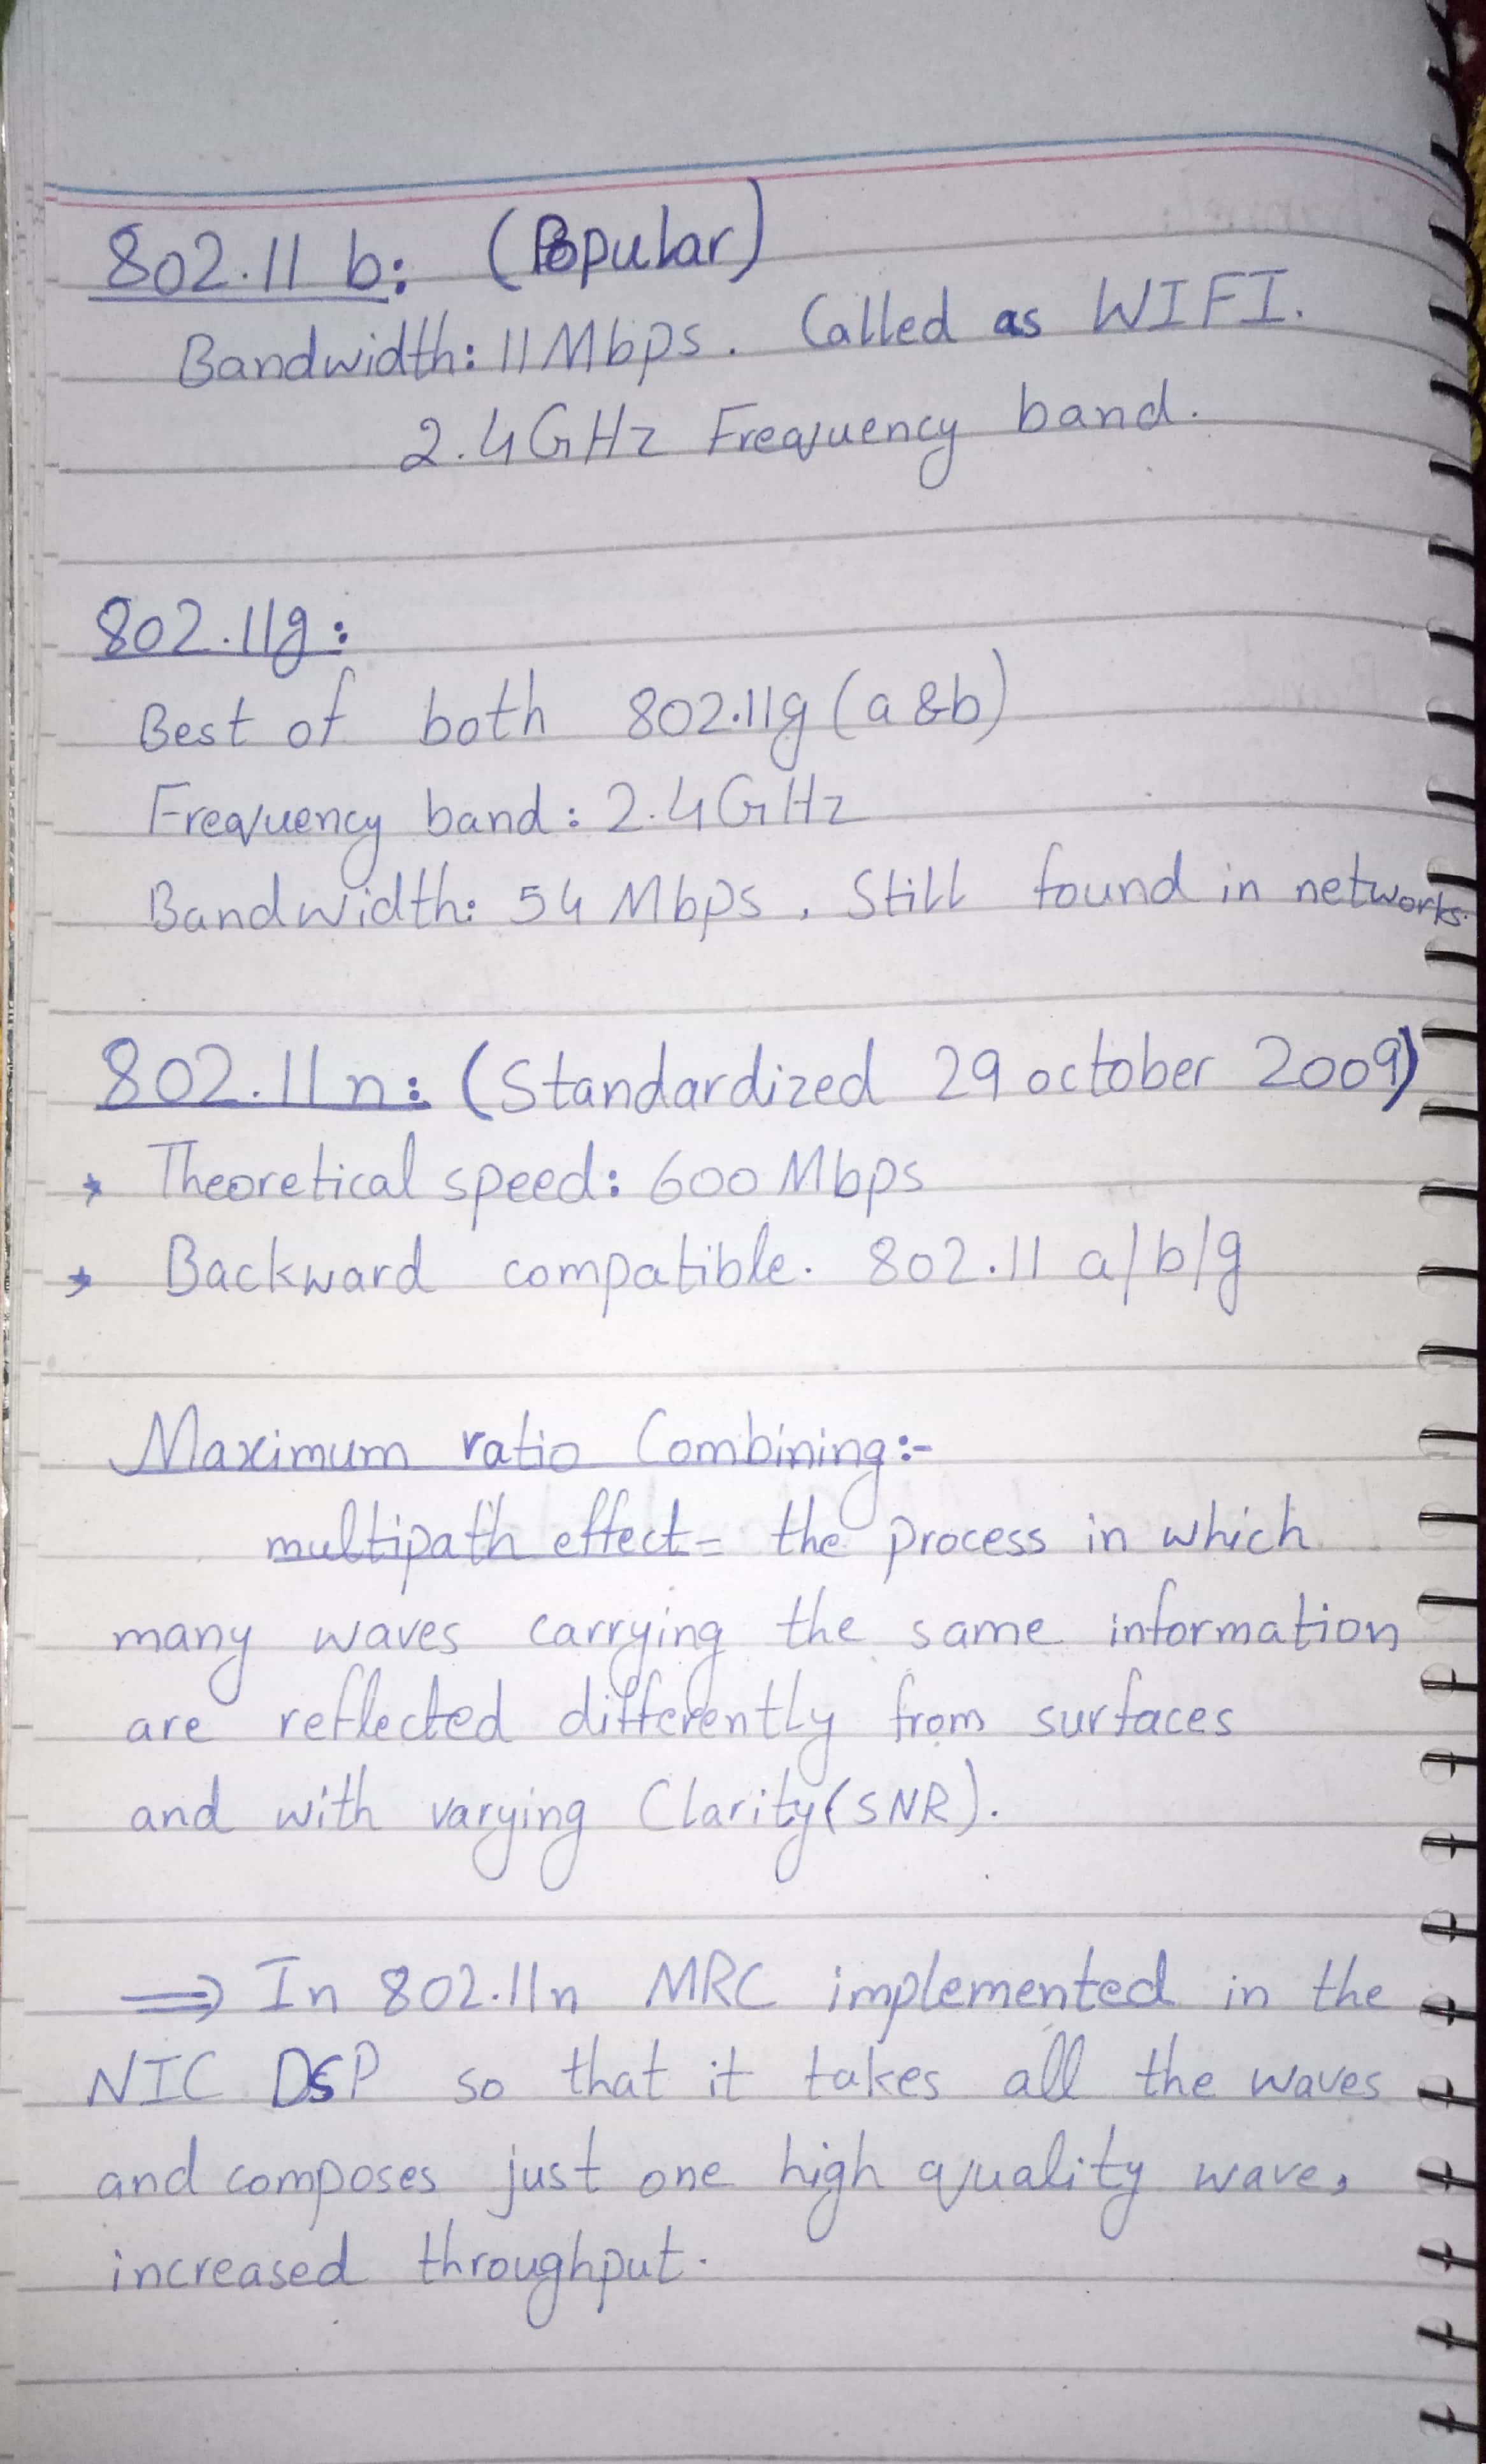 802.11 b: (Popular)
Bandwidth: 11 Mbps. Called as WIFI.
2.4GHz Frequency band.
802.11g:
Best of both 802.11g (a &b)
Frequency band: 2.4GHz
Bandwidth: 54 Mbps. Still found in networks.
802.11n: (Standardized 29 october 2009)
* Theoretical speed: 600 Mbps
* Backward compatible. 802.11 a/b/g
Maximum ratio Combining:-
multipath effect= the process in which
many waves carrying the same information
are reflected differently from surfaces
and with varying Clarity(SNR).
⇒ In 802.11n MRC implemented in the
NIC DSP so that it takes all the waves
and composes just one high quality wave,
increased throughput.